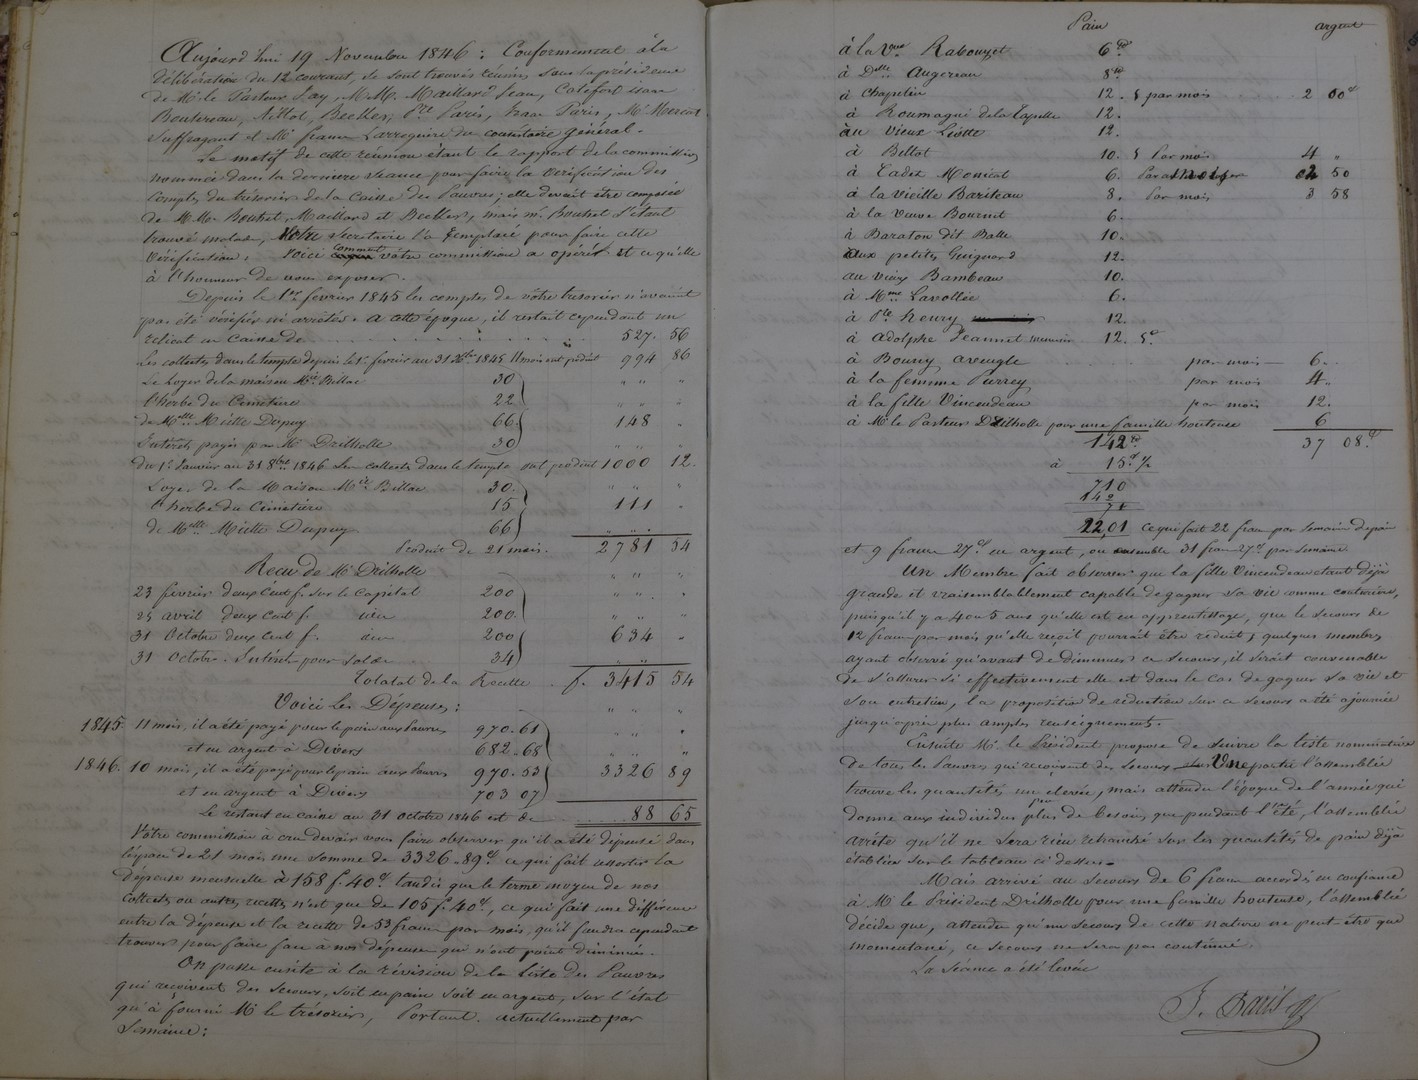 Aujourd'hui 19 Novembre 1846 : Conformément à la
délibération du 12 courant, se sont trouvés réunis sous la présidence
de Mr. le Pasteur Fay, M.M. Maillard Jean, Calefort isaac
Boutereau, Nillot, Becker, Pre Paris, Isaac Paris, Mr. Mercat
Suffragant et Mr. frans Larreguère du consistoire général.
Le motif de cette réunion étant le rapport de la commission
nommée dans la dernière séance pour faire la vérification des
comptes du trésorier de la Caisse des Pauvres ; elle devait être composée
de M.M. Bouhet, Maillard et Becker, mais mr. Bouhet s'étant
trouvé malade, Votre secrétaire l'a remplacé pour faire cette
vérification. Voici comment votre commission a opéré et ce qu'elle
à l'honneur de vous exposer.
Depuis le 1er fevrier 1845 les comptes de votre tresorier n'avaient
pas été vérifiés ni arrêtés. A cette époque, il restait cependant un
relicat en Caisse de 527. 56
Les collectes dans le temple depuis le 1er fevrier au 31 Xbre 1845 11 mois ont produit 994 86
Le Loyer de la maison Billac 30
l'herbe du Cimetière 22
de Melle Miette Dupuy 66 148
Intérêts payés par Mr. Drilholle 30
Du 1er Janvier au 31 8bre 1846 Les collectes dans le temple ont produit 1000 12
Loyer de la Maison Billac 30
l'herbe du Cimetière 15 111
de Melle Miette Dupuy 66
Produit de 21 mois. 2781 54
Recu de Mr. Drilholle
23 fevrier deux Cent f. sur le Capital 200
25 avril deux Cent f. idem 200
31 Octobre deux Cent f. idem 200 634
31 Octobre. Intérêts pour solde 34
Totatal de la Recette f. 3415 54
Voici les Dépenses :
1845. 11 mois, il a été payé pour le pain aux pauvres 970.61
et en argent à Divers 682.68
1846. 10 mois, il a été payé pour le pain aux Pauvres 970.53 3326 89
et en argent à Divers 703 07
Le restant en caisse au 31 octobre 1846 est de 88 65
Votre commission à cru devoir vous faire observer qu'il a été dépensé dans
l'espace de 21 mois une somme de 3326-89c ce qui fait ressortir la
dépense mensuelle à 158 f. 40c tandis que le terme moyen de nos
collectes ou autres recettes n'est que de 105 f. 40c, ce qui fait une différence
entre la dépense et la recette de 53 francs par mois, qu'il faudra cependant
trouver pour faire face à nos dépenses qui n'ont point diminué.
On passe ensuite à la révision de la liste des Pauvres
qui reçoivent des secours, soit en pain soit en argent, sur l'état
qu'à fourni Mr le trésorier, Portant actuellement par
Semaine :
Pain argent
à la Vve Rabouyet 6
à Delle Augereau 8
à Chapelin 12. par mois 2 00c
à Roumagné de la Tapelle 12.
au vieux Liotte 12.
à Billot 10. Par mois 4 "
à Cadet Mouniat 6. 2 50
à la vieille Bariteau 8. Par mois 3 58
à la Veuve Bournit 6.
à Baraton dit Balle 10.
aux petits Guignard 12.
au vieux Bambeau 10.
à Mme Lavollée 6.
à Pre henry 12.
à adolphe Jeannet 12. 5c
à Boussy aveugle par mois 6.
à la femme Purrey par mois 4.
à la fille Vincendeau par mois 12.
à Mr le Pasteur Drilholle pour une famille honteuse 6
142 37 08c
à 15c ½
710
142
71
22,01 ce qui fait 22 francs par semaine de pain
et 9 francs 27c en argent, ou ensemble 31 fran 27c par semaine
Un Membre fait observer que la fille Vincendeau étant déjà
grande et vraisemblablement capable de gagner sa vie comme couturière,
puisqu'il y a 4 ou 5 ans qu'elle est en apprentissage, que le secours de
12 francs par mois qu'elle reçoit pourrait être réduit ; quelques membres
ayant observé qu'avant de diminuer ce secours, il serait convenable
de s'assurer si effectivement elle est dans le cas de gagner sa vie et
son entretien, la proposition de réduction sur ce secours a été ajournée
jusqu'après plus amples renseignements.
Ensuite Mr. le Président propose de suivre la liste nominative
de tous les Pauvres qui reçoivent des secours Une partie l'assemblée
trouve les quantités un peu élevée, mais attendu l'époque de l'année qui
donne aux individus plus de besoins que pendant l'été, l'assemblée
arrête qu'il ne sera rien retranché sur les quantités de pain déjà
établies sur le tableau ci dessus.
Mais arrivé au secours de 6 francs accordés en confiance
à Mr le Président Drilholle pour une famille honteuse, l'assemblée
décide que, attendu qu'un secours de cette nature ne peut être que
momentané, ce secours ne sera pas continué.
La Séance a été levée
J. Paris